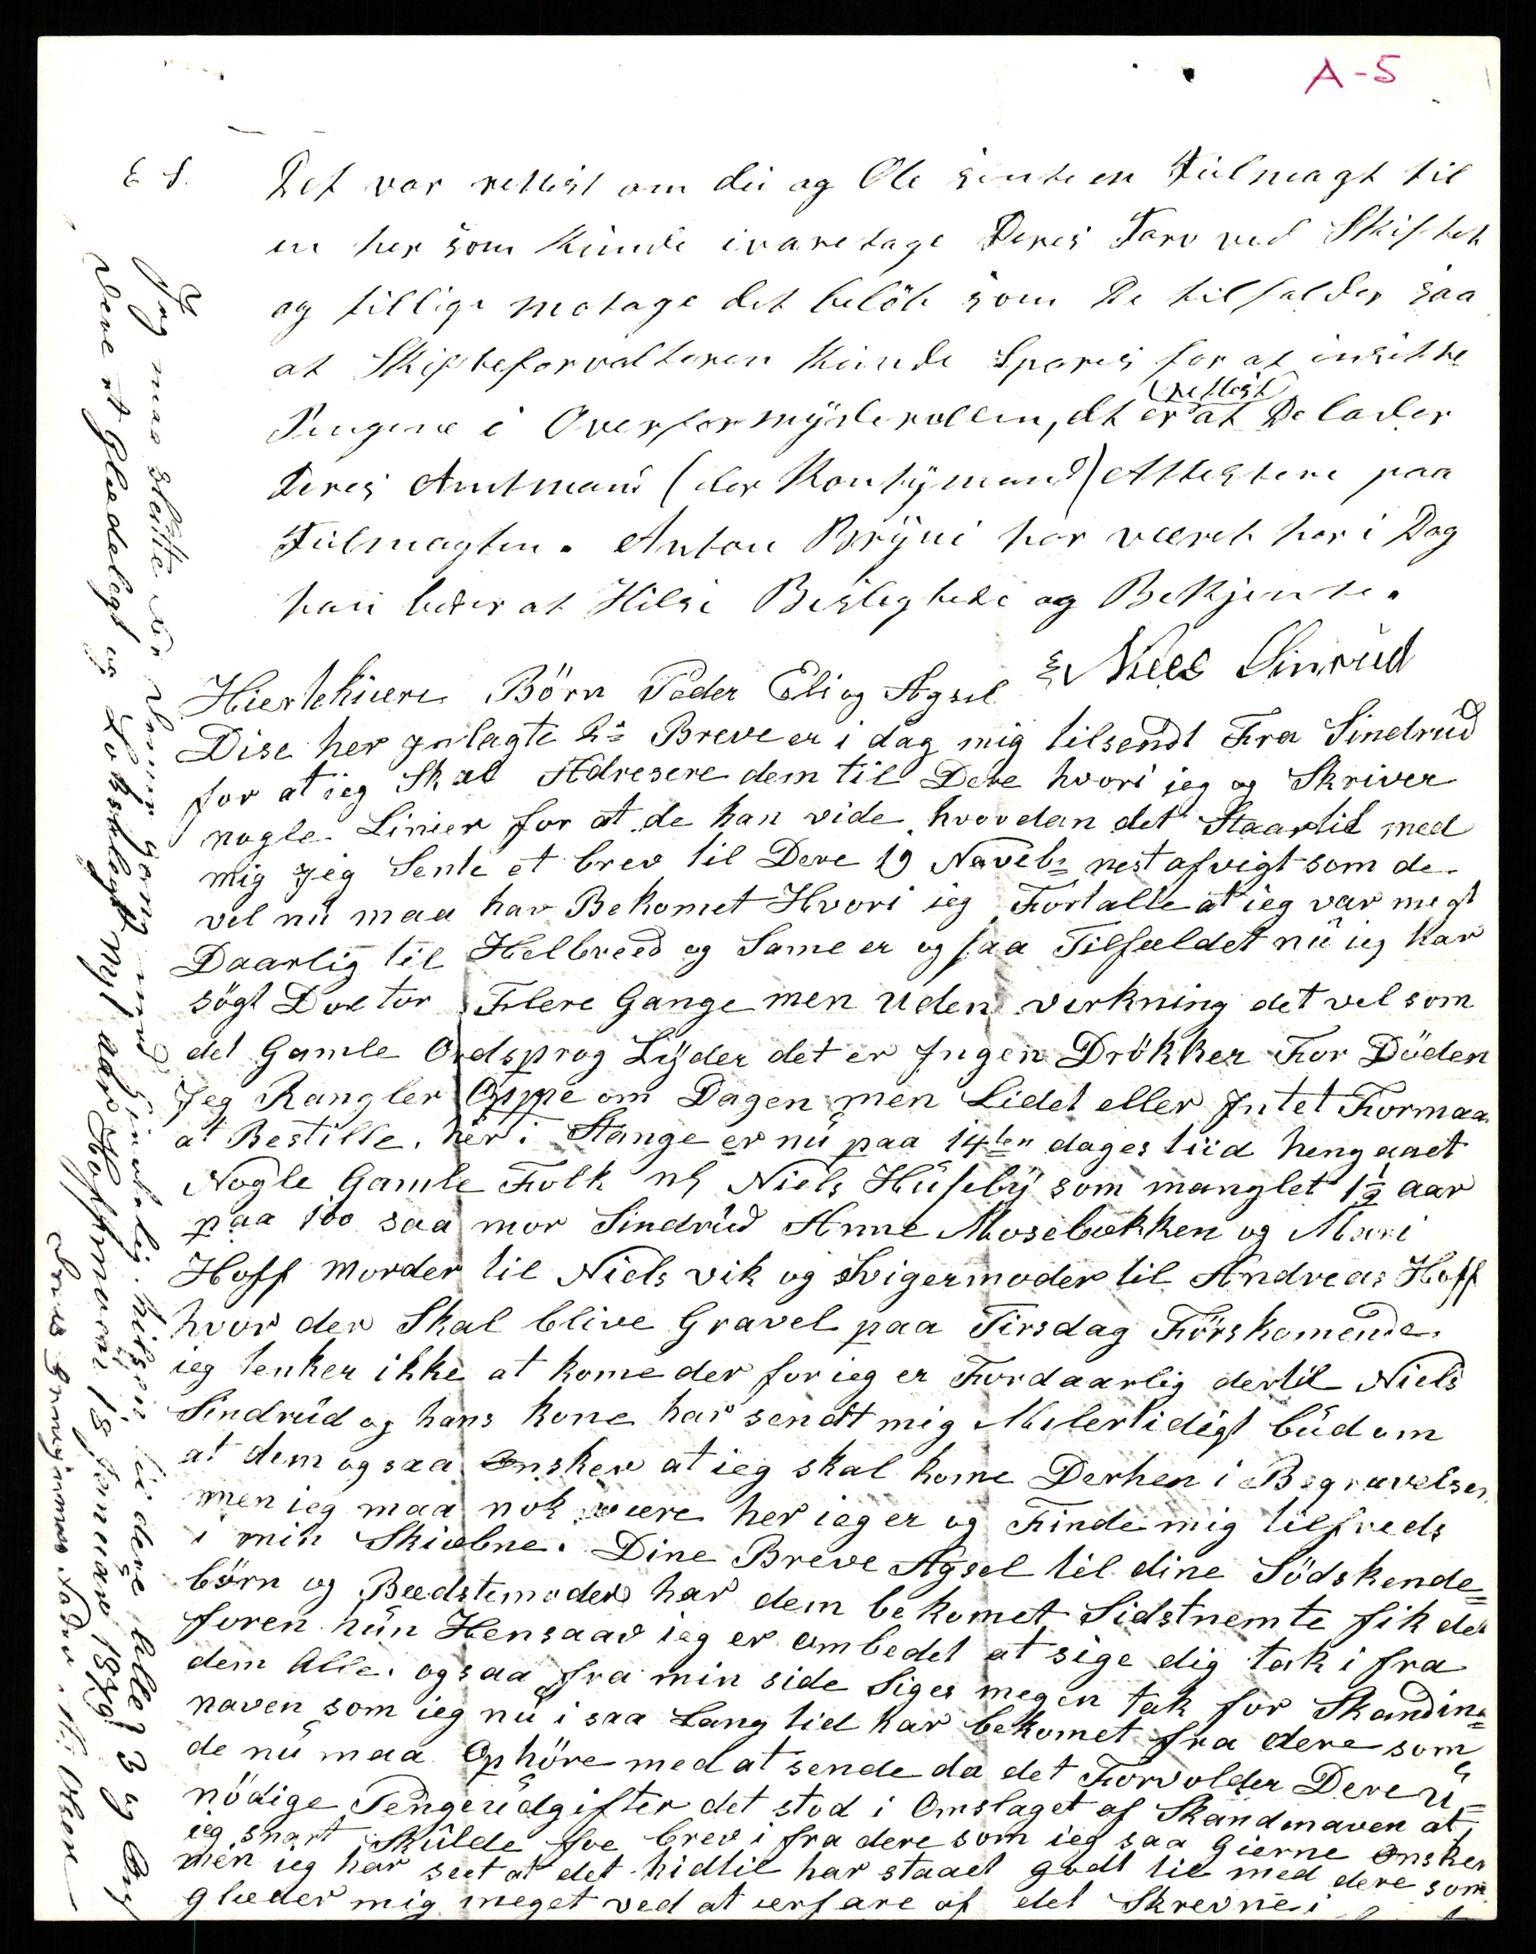 A-5
E S. Det var rettest om du og Ole sente en Fulmagt til
en her som kunde ivaretage Deres Tarv ved Skiftet
og tillige motage det beløb som De tilfalder saa
at Skifteforvalteren kunde Spares for at insætte
Pengene i Overformynderollen, dt er (rettest) at De lader
Deres Amtmand (eler Kontymand) Attestere paa
Fulmagten. Anton Bryni har været her i Dag
han beder at Hilse Beslegtede og Bekjente.
Niels Sinrud
Hiertekiere Børn Peder Eli og Agsel
Dise her Inlagte 2de Breve er i dag mig tilsendt Fra Sindrud
for at ieg Skal Adresere dem til Dere hvori jeg og Skriver
nogle Linier for at de kan vide hvordan det Staar til med
mig Jeg Sente et brev til Dere 19 Naveb: nest afvigt som de
vel nu maa har Bekomet Hvori ieg Fortalte at ieg var megt
Daarlig til Helbreed og Same er og saa Tilfældet nu ieg har
søgt Doctor Flere Gange men uden virkning det vel som
det Gamle Ordsprog Lyder det er Ingen Drøkker For Døden
Jeg Rangler Oppe om Dagen men Lidet eller Intet Formaa
at Bestille. her i Stange er nu paa 14ten dages tiid hengaaet
Nogle Gamle Folk nl Niels Huseby som manglet 1½ aar
paa 100 saa mor Sindrud Anne Mosebækken og Mari
Hoff Morder til Niels vik og Svigermoder til Andreas Hoff
hvor der Skal blive Gravøl paa Tirsdag Førskomende.
ieg tenker ikke at kome der for ieg er Fordaarlig dertil Niels
Sindrud og hans kone har sendt mig Melertidigt bud om
at dem og saa Ønsker at ieg skal kome Derhen i Begravelsen
men ieg maa nok være her ieg er og Finde mig tilfreds
i min Skiæbne. Dine Breve Agsel til dine Südskende=
børn og Bædstemoder har dem bekomet Sidstnemte fik de
foren hun Hensaav ieg er ombedet at sige dig tak i fra
dem Alle. ogsaa fra min side Siges megen tak for Skandin=
naven som ieg nu i saa Lang tid har bekomet fra dere som
de nu maa Ophöre med at sende da det Forvolder Dere u=
nödige Pengeudgifter det stod i Omslaget af Skandinaven at
ieg snart Skulde foe brev i fra dere som ieg saa gierne Ønsker
men ieg har seet at det hidtil har staaet godt til med dere som
glæder mig meget ved at ærfare af det Skrevne i
Jeg maa slutte for Denne gang med Kierlig hilsen til dere alle 3 og Ønsker
Dere et Gledeligt og Lykeligt Nyt aar Hoffmoen 18 Januar 1879